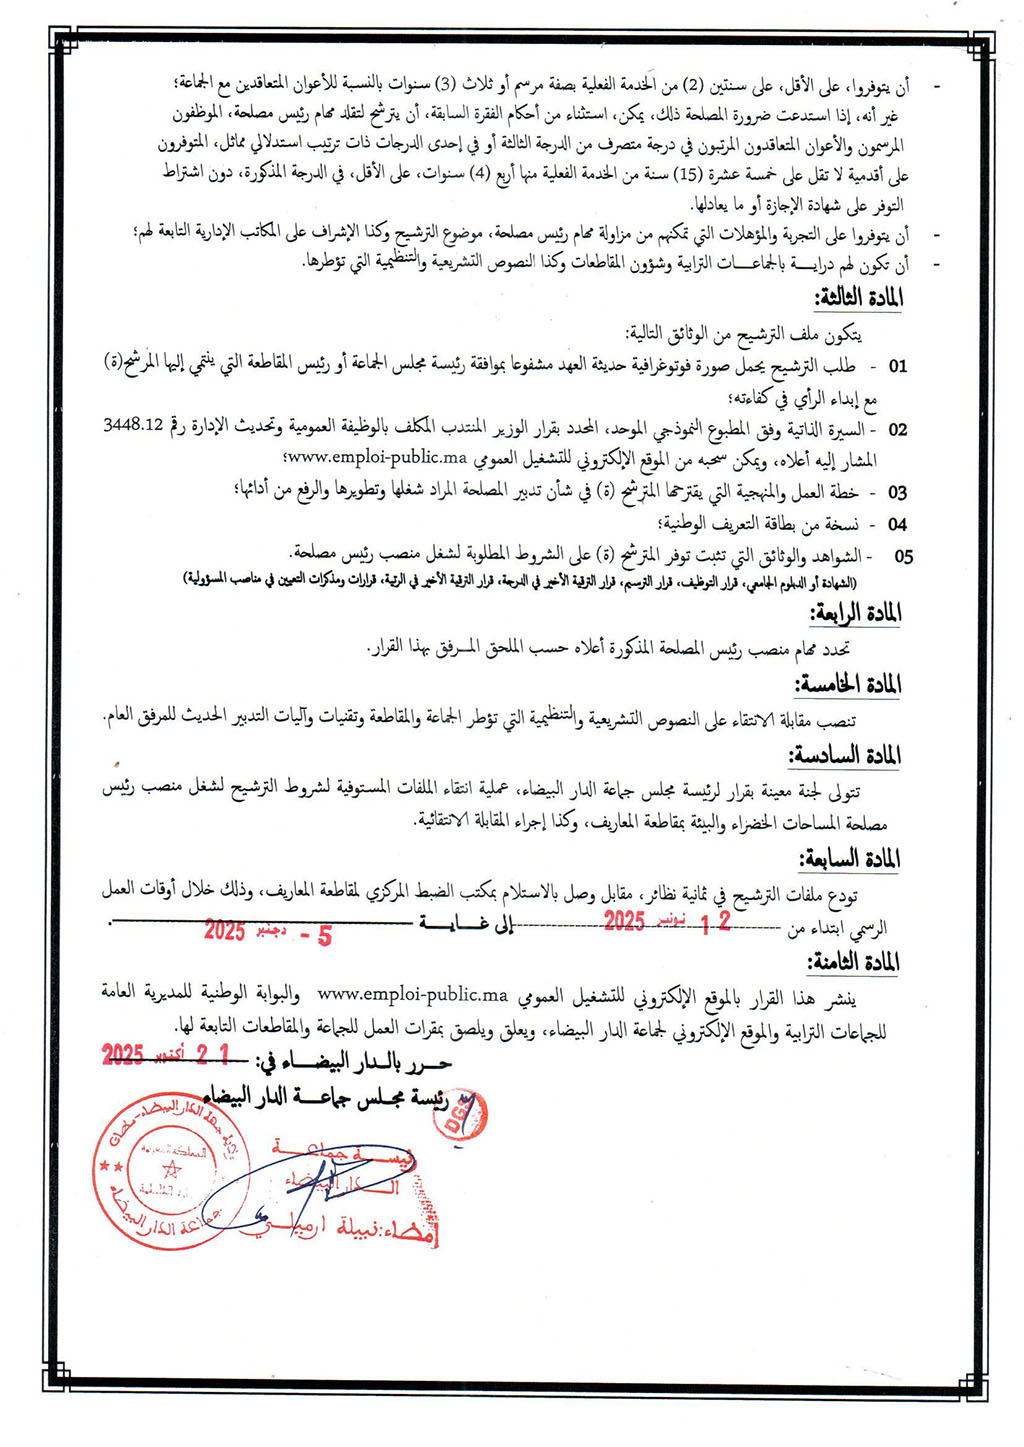 - أن يتوفروا، على الأقل، على سنتين (2) من الخدمة الفعلية بصفة مرسم أو ثلاث (3) سنوات بالنسبة للأعوان المتعاقدين مع الجماعة؛
غير أنه، إذا استدعت ضرورة المصلحة ذلك، يمكن، استثناء من أحكام الفقرة السابقة، أن يترشح لتقلد مهام رئيس مصلحة، الموظفون
المرسمون والأعوان المتعاقدون المرتبون في درجة متصرف من الدرجة الثالثة أو في إحدى الدرجات ذات ترتيب استدلالي مماثل، المتوفرون
على أقدمية لا تقل على خمسة عشرة (15) سنة من الخدمة الفعلية منها أربع (4) سنوات، على الأقل، في الدرجة المذكورة، دون اشتراط
التوفر على شهادة الإجازة أو ما يعادلها.
- أن يتوفروا على التجربة والمؤهلات التي تمكنهم من مزاولة مهام رئيس مصلحة، موضوع الترشيح وكذا الإشراف على المكاتب الإدارية التابعة لهم؛
- أن تكون لهم دراية بالجماعات الترابية وشؤون المقاطعات وكذا النصوص التشريعية والتنظيمية التي تؤطرها.
المادة الثالثة:
يتكون ملف الترشيح من الوثائق التالية:
01 - طلب الترشيح يحمل صورة فوتوغرافية حديثة العهد مشفوعا بموافقة رئيسة مجلس الجماعة أو رئيس المقاطعة التي ينتمي إليها المرشح(ة)
مع إبداء الرأي في كفاءته؛
02 - السيرة الذاتية وفق المطبوع النموذجي الموحد، المحدد بقرار الوزير المنتدب المكلف بالوظيفة العمومية وتحديث الإدارة رقم 3448.12
المشار إليه أعلاه، ويمكن سحبه من الموقع الإلكتروني للتشغيل العمومي www.emploi-public.ma؛
03 - خطة العمل والمنهجية التي يقترحها المترشح (ة) في شأن تدبير المصلحة المراد شغلها وتطويرها والرفع من أدائها؛
04 - نسخة من بطاقة التعريف الوطنية؛
05 - الشواهد والوثائق التي تثبت توفر المترشح (ة) على الشروط المطلوبة لشغل منصب رئيس مصلحة.
(الشهادة أو الدبلوم الجامعي، قرار التوظيف، قرار الترسيم، قرار الترقية الأخير في الدرجة، قرار الترقية الأخير في الرتبة، قرارات ومذكرات التعيين في مناصب المسؤولية)
المادة الرابعة:
تحدد مهام منصب رئيس المصلحة المذكورة أعلاه حسب الملحق المرفق بهذا القرار.
المادة الخامسة:
تنصب مقابلة الانتقاء على النصوص التشريعية والتنظيمية التي تؤطر الجماعة والمقاطعة وتقنيات وآليات التدبير الحديث للمرفق العام.
المادة السادسة:
تتولى لجنة معينة بقرار لرئيسة مجلس جماعة الدار البيضاء، عملية انتقاء الملفات المستوفية لشروط الترشيح لشغل منصب رئيس
مصلحة المساحات الخضراء والبيئة بمقاطعة المعاريف، وكذا إجراء المقابلة الانتقائية.
المادة السابعة:
تودع ملفات الترشيح في ثمانية نظائر، مقابل وصل بالاستلام بمكتب الضبط المركزي لمقاطعة المعاريف، وذلك خلال أوقات العمل
الرسمي ابتداء من 12 نونبر 2025 إلى غاية 5 - دجنبر 2025.
المادة الثامنة:
ينشر هذا القرار بالموقع الإلكتروني للتشغيل العمومي www.emploi-public.ma والبوابة الوطنية للمديرية العامة
للجماعات الترابية والموقع الإلكتروني لجماعة الدار البيضاء، ويعلق ويلصق بمقرات العمل للجماعة والمقاطعات التابعة لها.
حرر بالدار البيضاء في: 21 أكتوبر 2025
رئيسة مجلس جماعة الدار البيضاء
DGS
رئيسة جماعة
الدار البيضاء
إمضاء: نبيلة ارميلي
المملكة المغربية
جماعة الدار البيضاء